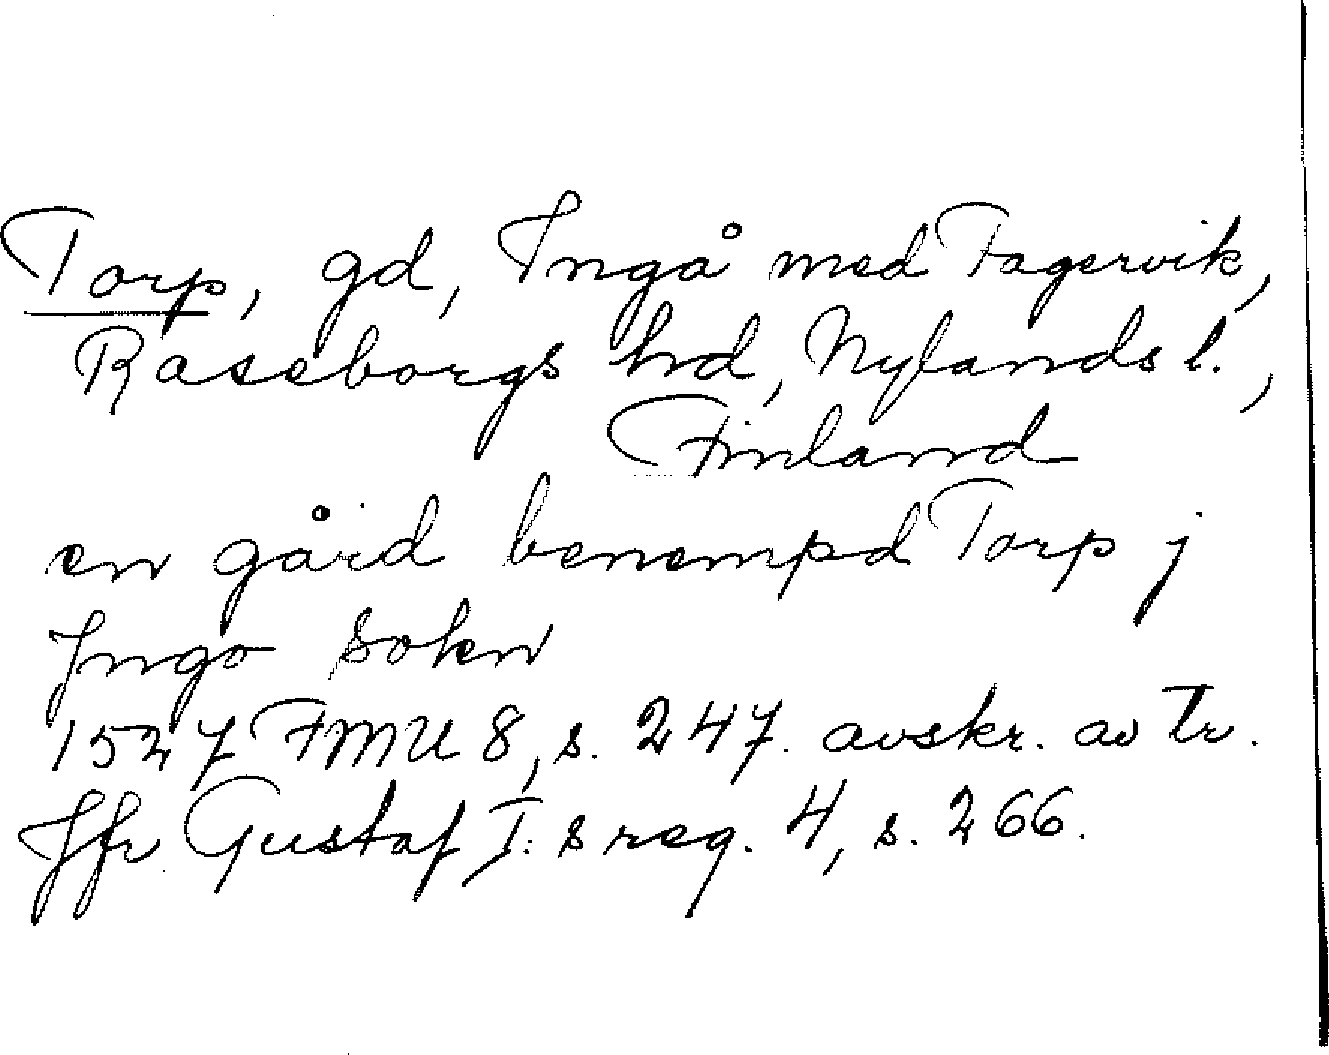 Torp, gd, Ingå med Fagervik,
Raseborgs hd, Nylands l.,
Finland
en gård benempd Torp j
Jngo sokn
1527 FMU 8, s. 247. avskr. av tr.
Jfr Gustaf I:s reg. 4, s. 266.